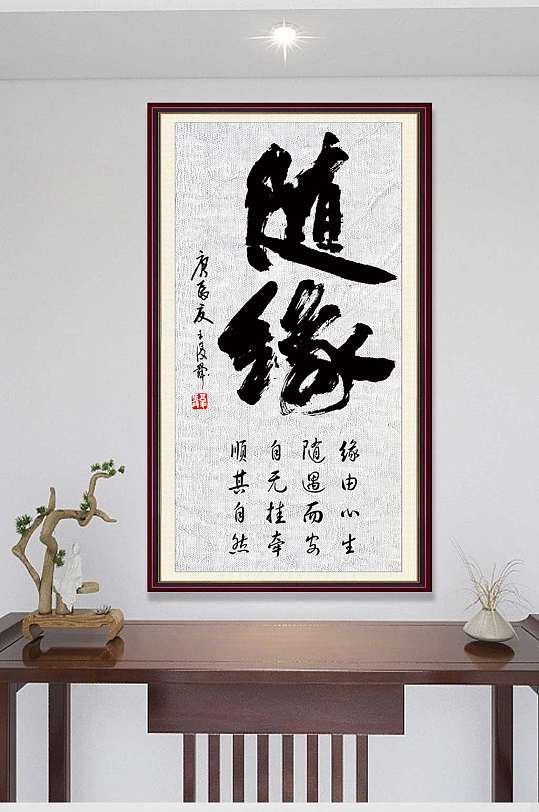 随缘
缘由心生
随遇而安
自无挂牵
顺其自然